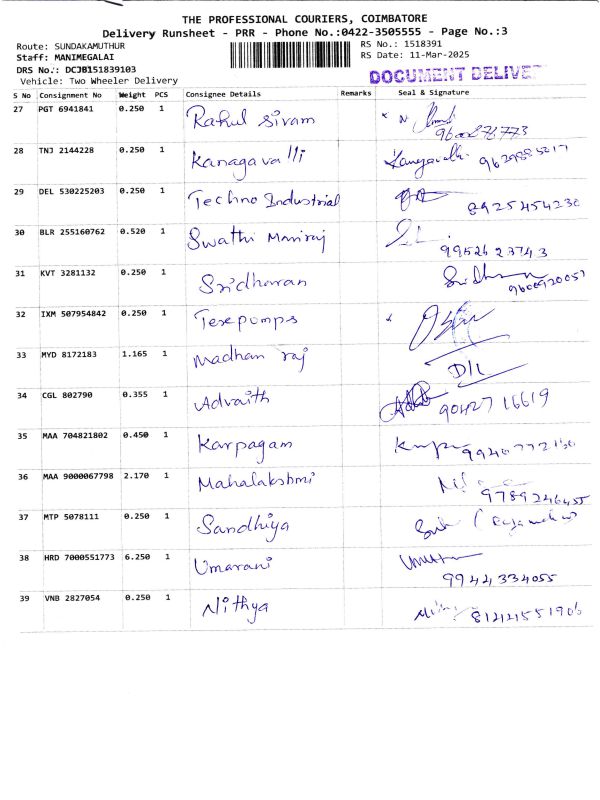 THE PROFESSIONAL COURIERS, COIMBATORE
Delivery Runsheet - PRR - Phone No.:0422-3505555 - Page No.:3
Route: SUNDAKAMUTHUR
RS No.: 1518391
Staff: MANIMEGALAI
RS Date: 11-Mar-2025
DRS No.: DCJB151839103
Vehicle: Two Wheeler Delivery
DOCUMENT DELIVE
S No Consignment No Weight PCS Consignee Details Remarks Seal & Signature
27 PGT 6941841 0.250 1 Rahul Sivam
28 TNJ 2144228 0.250 1 Kanagavalli
29 DEL 530225203 0.250 1 Techno Industrial 8925454230
30 BLR 255160762 0.520 1 Swathi Maniraj 9952623743
31 KVT 3281132 0.250 1 Sridharan 9600920057
32 IXM 507954842 0.250 1 Texpomps
33 MYD 8172183 1.165 1 Madhan raj D/L
34 CGL 802790 0.355 1 Advaith 9042716619
35 MAA 704821802 0.450 1 Karpagam
36 MAA 9000067798 2.170 1 Mahalakshmi 9789246455
37 MTP 5078111 0.250 1 Sandhiya
38 HRD 7000551773 6.250 1 Umarani 9944334055
39 VNB 2827054 0.250 1 Nithya